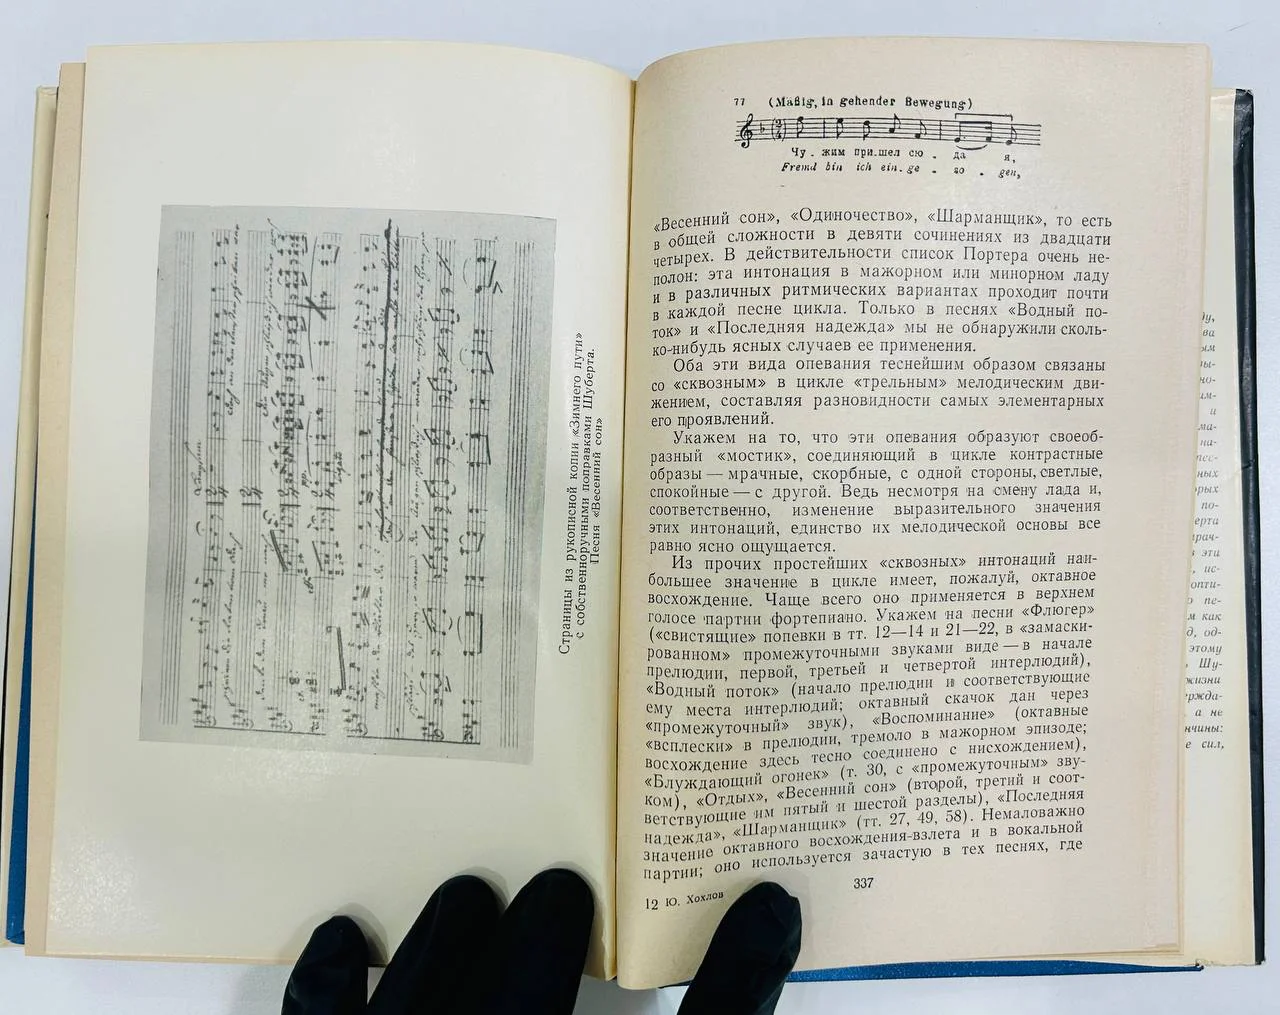 Страницы из рукописной копии «Зимнего пути»
с собственноручными поправками Шуберта.
Песня «Весенний сон»
77 (Mäßig, in gehender Bewegung)
Чу - жим при-шел сю - да я,
Fremd bin ich ein-ge - zo - gen,
«Весенний сон», «Одиночество», «Шарманщик», то есть
в общей сложности в девяти сочинениях из двадцати
четырех. В действительности список Портера очень не-
полон: эта интонация в мажорном или минорном ладу
и в различных ритмических вариантах проходит почти
в каждой песне цикла. Только в песнях «Водный по-
ток» и «Последняя надежда» мы не обнаружили сколь-
ко-нибудь ясных случаев ее применения.
Оба эти вида опевания теснейшим образом связаны
со «сквозным» в цикле «трельным» мелодическим дви-
жением, составляя разновидности самых элементарных
его проявлений.
Укажем на то, что эти опевания образуют своеоб-
разный «мостик», соединяющий в цикле контрастные
образы — мрачные, скорбные, с одной стороны, светлые,
спокойные — с другой. Ведь несмотря на смену лада и,
соответственно, изменение выразительного значения
этих интонаций, единство их мелодической основы все
равно ясно ощущается.
Из прочих простейших «сквозных» интонаций наи-
большее значение в цикле имеет, пожалуй, октавное
восхождение. Чаще всего оно применяется в верхнем
голосе партии фортепиано. Укажем на песни «Флюгер»
(«свистящие» попевки в тт. 12—14 и 21—22, в «замаски-
рованном» промежуточными звуками виде — в начале
прелюдии, первой, третьей и четвертой интерлюдий),
«Водный поток» (начало прелюдии и соответствующие
ему места интерлюдий; октавный скачок дан через
«промежуточный» звук), «Воспоминание» (октавные
«всплески» в прелюдии, тремоло в мажорном эпизоде;
восхождение здесь тесно соединено с нисхождением),
«Блуждающий огонек» (т. 30, с «промежуточным» зву-
ком), «Отдых», «Весенний сон» (второй, третий и соот-
ветствующие им пятый и шестой разделы), «Последняя
надежда», «Шарманщик» (тт. 27, 49, 58). Немаловажно
значение октавного восхождения-взлета и в вокальной
партии; оно используется зачастую в тех песнях, где
12 Ю. Хохлов
337